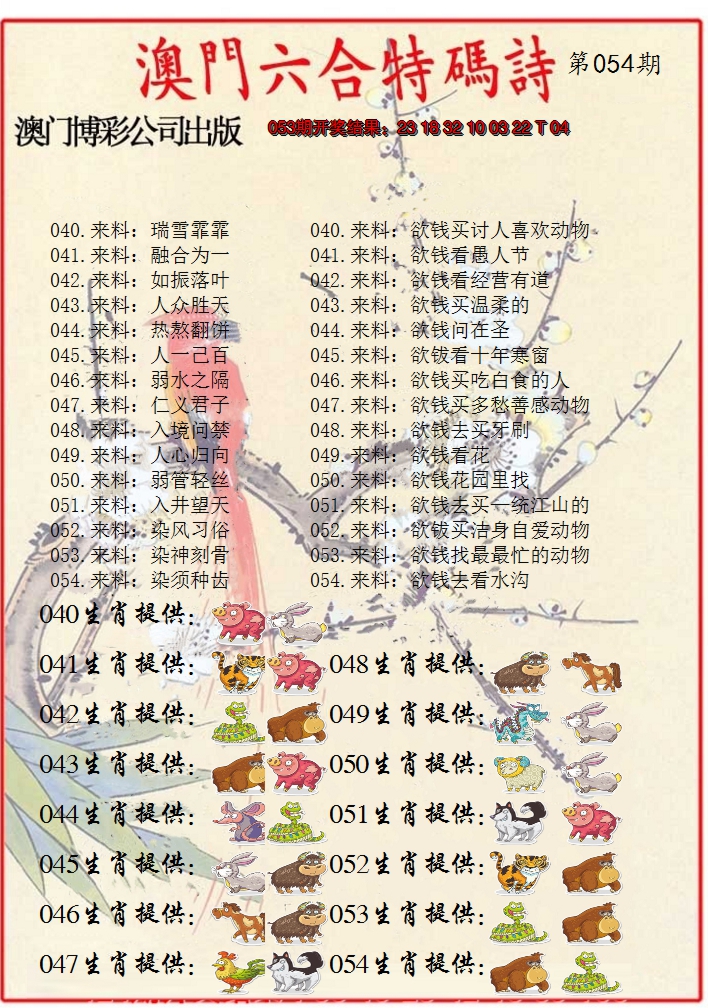 澳門六合特碼詩 第054期
澳门博彩公司出版 053期开奖结果：23 18 32 10 03 22 T 04
040.来料：瑞雪霏霏 040.来料：欲钱买讨人喜欢动物
041.来料：融合为一 041.来料：欲钱看愚人节
042.来料：如振落叶 042.来料：欲钱看经营有道
043.来料：人众胜天 043.来料：欲钱买温柔的
044.来料：热熬翻饼 044.来料：欲钱问在圣
045.来料：人一己百 045.来料：欲钹看十年寒窗
046.来料：弱水之隔 046.来料：欲钱买吃白食的人
047.来料：仁义君子 047.来料：欲钱买多愁善感动物
048.来料：入境问禁 048.来料：欲钱去买牙刷
049.来料：人心归向 049.来料：欲钱看花
050.来料：弱管轻丝 050.来料：欲钱花园里找
051.来料：入井望天 051.来料：欲钱去买一统江山的
052.来料：染风习俗 052.来料：欲钹买洁身自爱动物
053.来料：染神刻骨 053.来料：欲钱找最最忙的动物
054.来料：染须种齿 054.来料：欲钱去看水沟
040生肖提供：
041生肖提供： 048生肖提供：
042生肖提供： 049生肖提供：
043生肖提供： 050生肖提供：
044生肖提供： 051生肖提供：
045生肖提供： 052生肖提供：
046生肖提供： 053生肖提供：
047生肖提供： 054生肖提供：